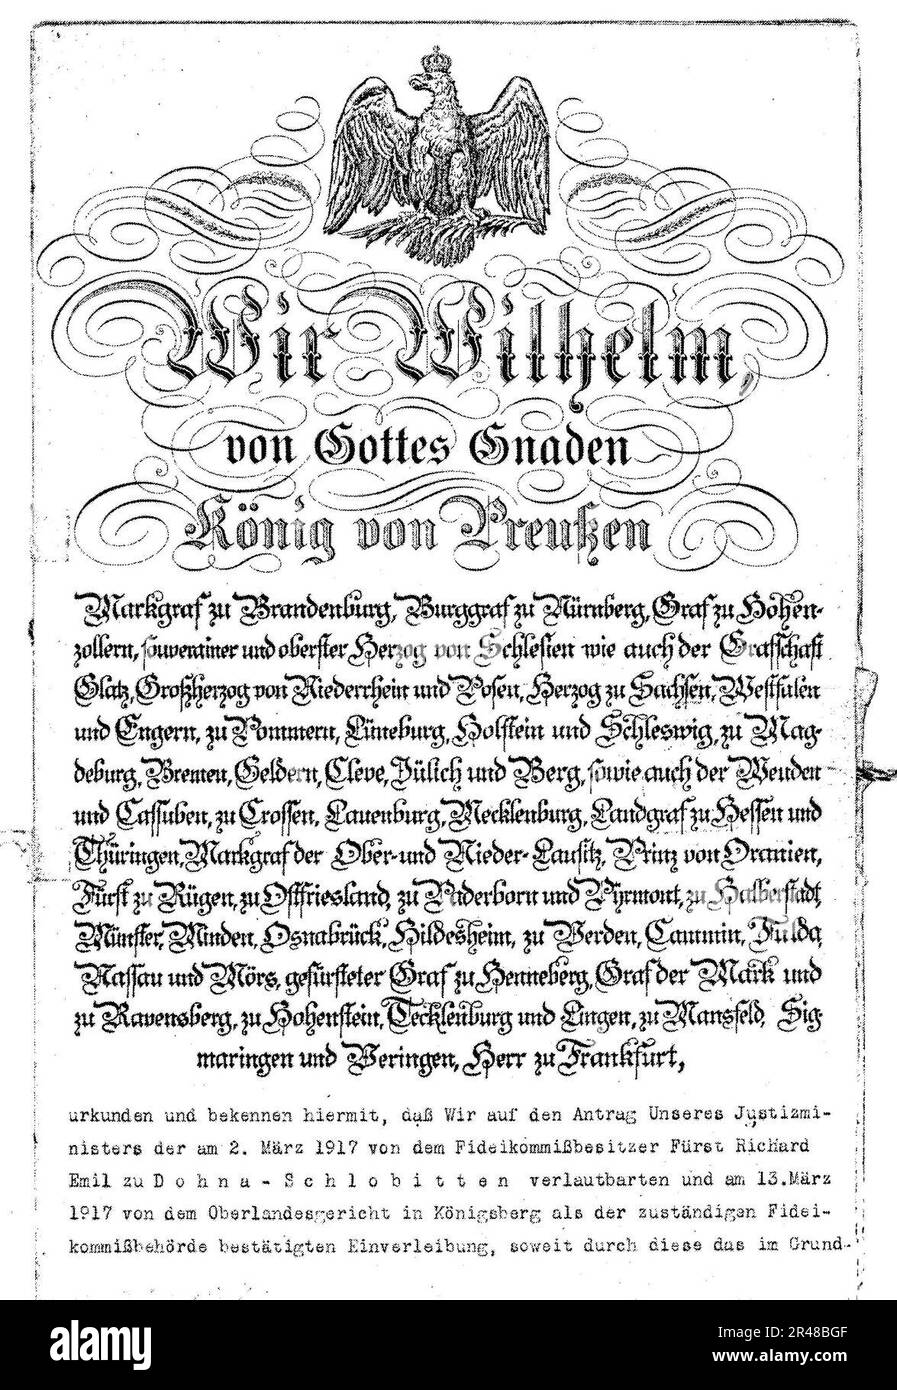 Wir Wilhelm,
von Gottes Gnaden
König von Preußen
Markgraf zu Brandenburg, Burggraf zu Nürnberg, Graf zu Hohen-
zollern, souverainer und oberster Herzog von Schlesien wie auch der Grafschaft
Glatz, Großherzog von Niederrhein und Posen, Herzog zu Sachsen, Westfalen
und Engern, zu Pommern, Lüneburg, Holstein und Schleswig, zu Mag-
deburg, Bremen, Geldern, Cleve, Jülich und Berg, sowie auch der Wenden
und Cassuben, zu Crossen, Lauenburg, Mecklenburg, Landgraf zu Hessen und
Thüringen, Markgraf der Ober- und Nieder-Lausitz, Prinz von Oranien,
Fürst zu Rügen, zu Ostfriesland, zu Paderborn und Pyrmont, zu Halberstadt,
Münster, Minden, Osnabrück, Hildesheim, zu Verden, Cammin, Fulda,
Nassau und Mörs, gefürsteter Graf zu Henneberg, Graf der Mark und
zu Ravensberg, zu Hohenstein, Tecklenburg und Lingen, zu Mansfeld, Sig
maringen und Veringen, Herr zu Frankfurt,
urkunden und bekennen hiermit, daß Wir auf den Antrag Unseres Justizmi-
nisters der am 2. März 1917 von dem Fideikommißbesitzer Fürst Richard
Emil zu Dohna-Schlobitten verlautbarten und am 13.März
1917 von dem Oberlandesgericht in Königsberg als der zuständigen Fidei-
kommißbehörde bestätigten Einverleibung, soweit durch diese das im Grund-
alamy
Image ID: 2R48BGF
www.alamy.com